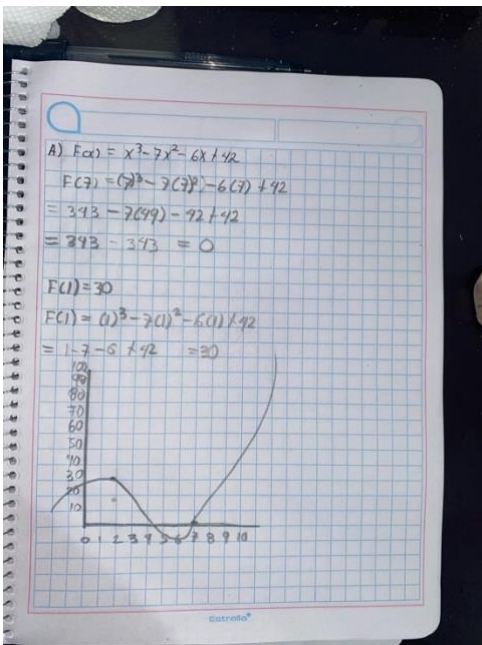 A) F(x) = x³ - 7x² - 6x + 42
F(7) = (7)³ - 7(7)² - 6(7) + 42
= 343 - 7(49) - 42 + 42
= 343 - 343 = 0
F(1) = 30
F(1) = (1)³ - 7(1)² - 6(1) + 42
= 1 - 7 - 6 + 42 = 30
100
90
80
70
60
50
40
30
20
10
0 1 2 3 4 5 6 7 8 9 10
Estrella